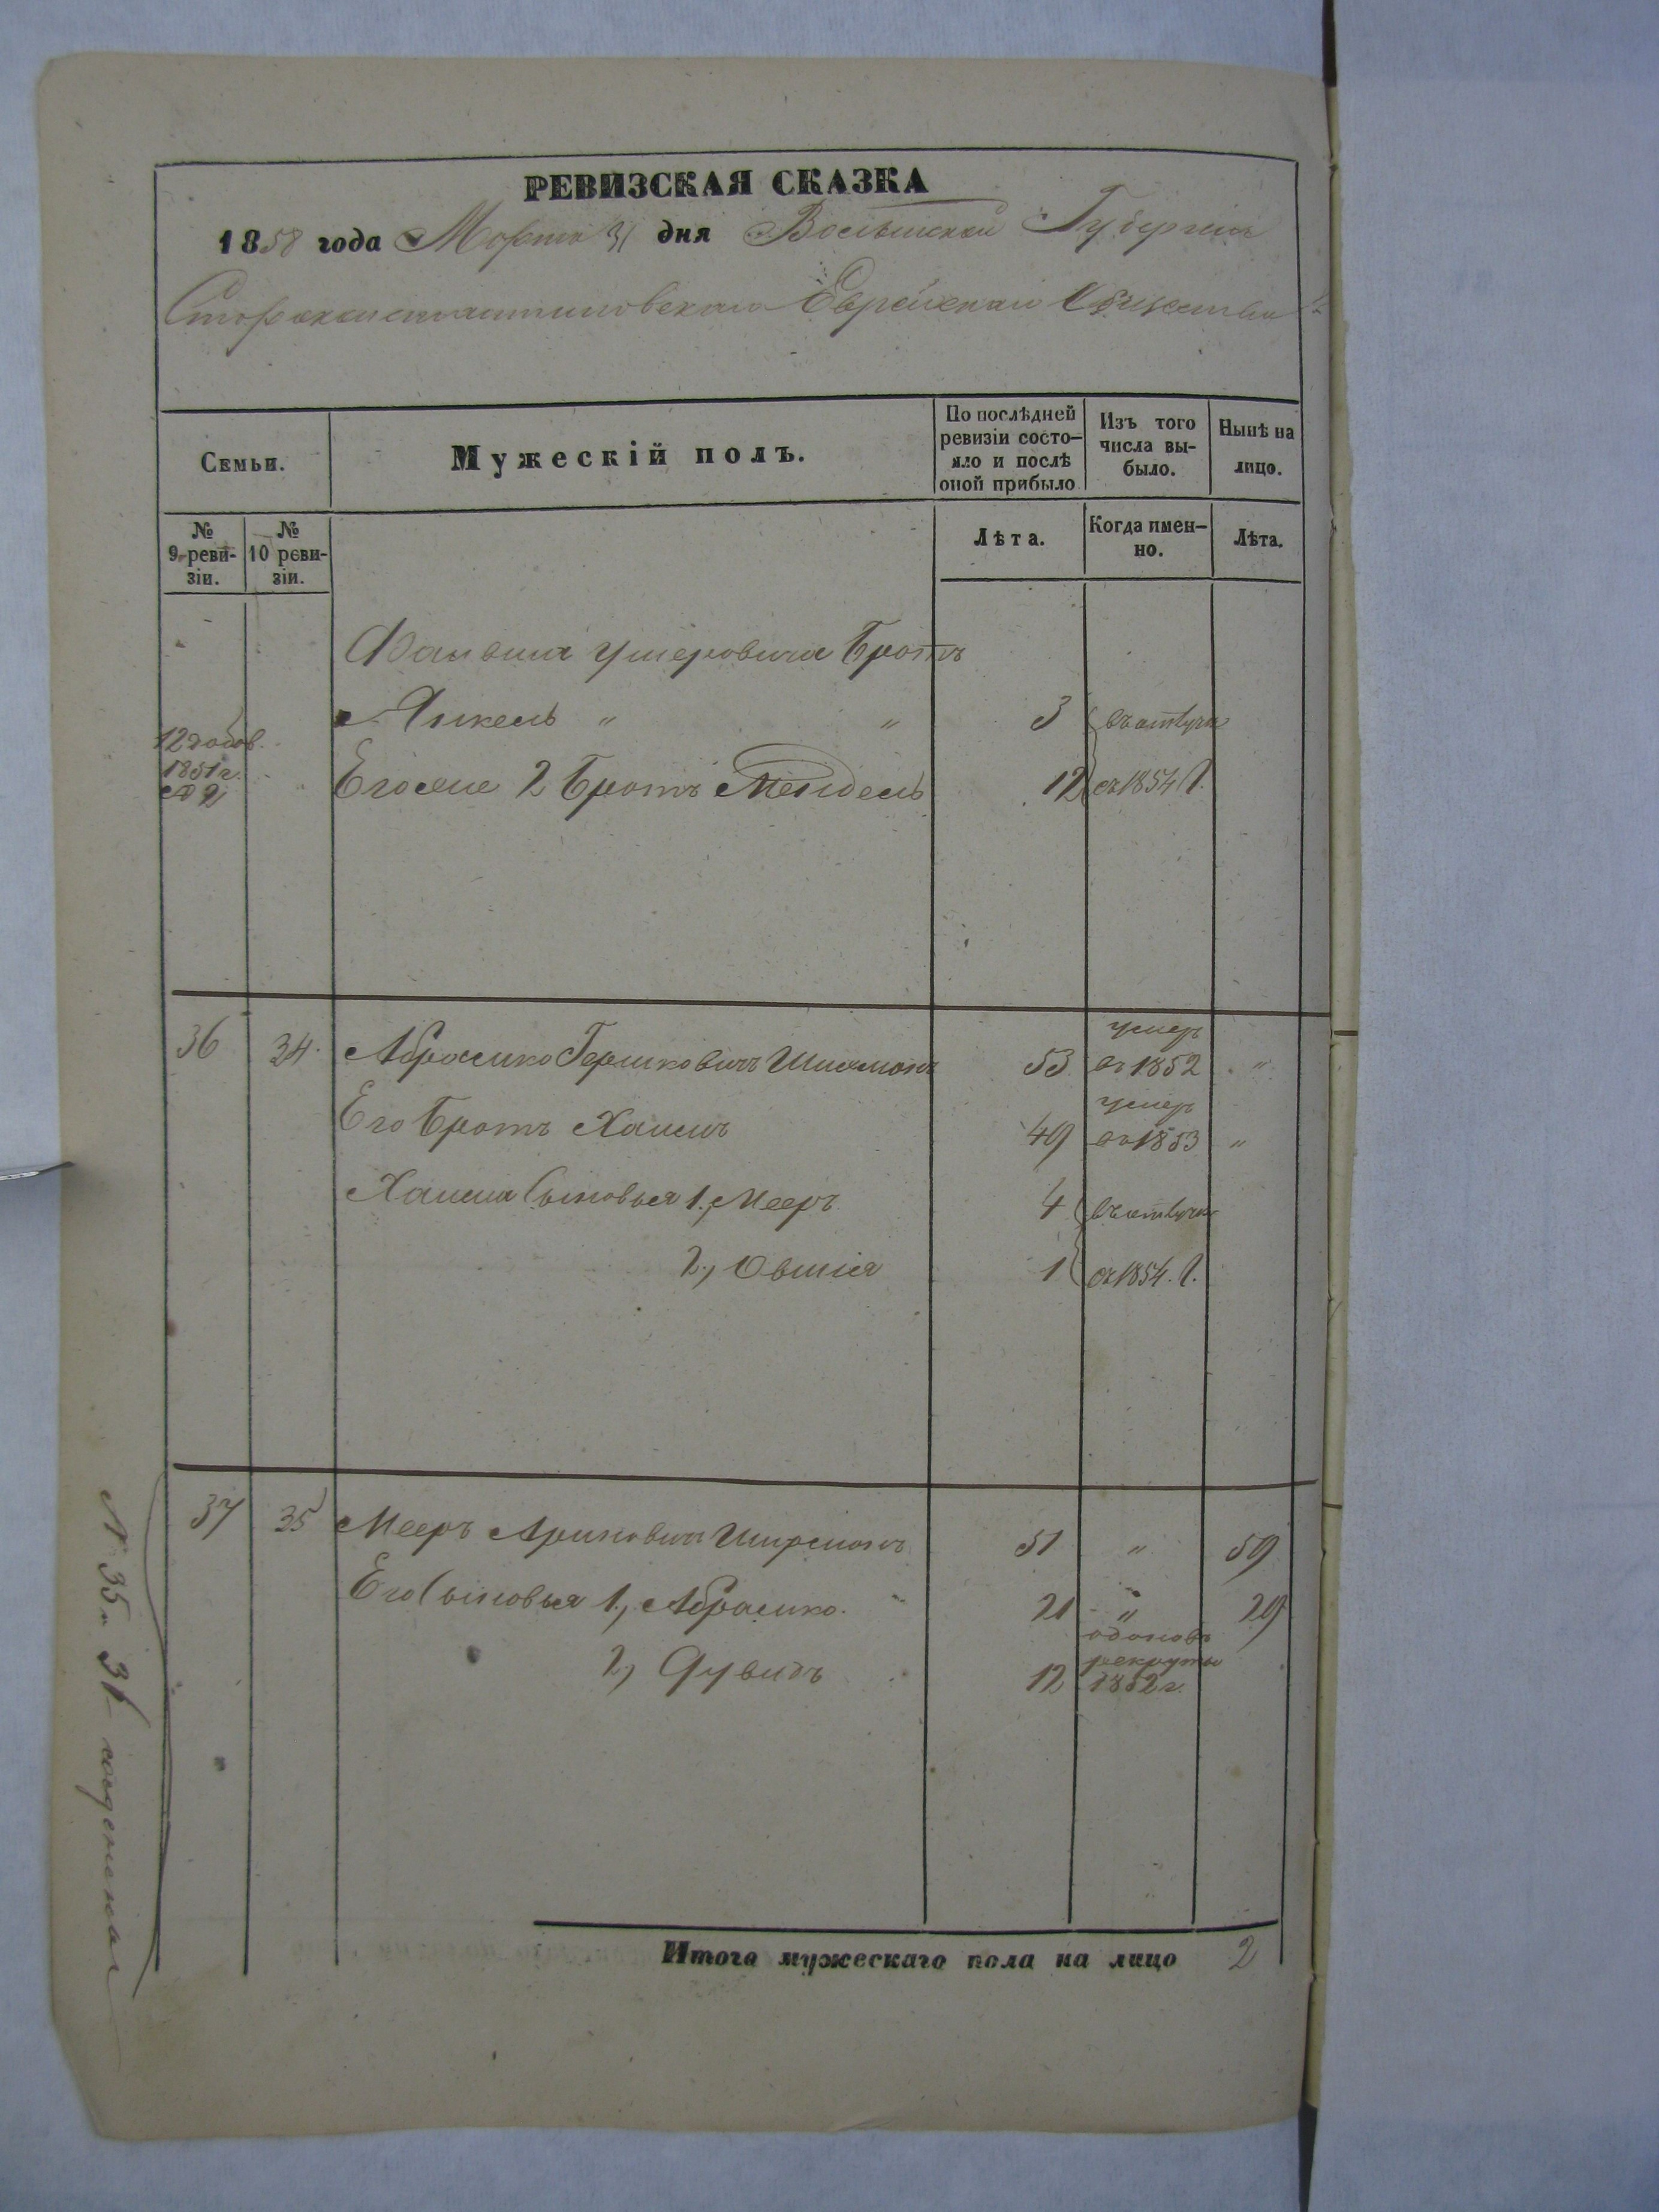 РЕВИЗСКАЯ СКАЗКА
1858 года Марта 31 дня Волынской Губернiи
Староконстантиновскаго Еврейскаго Общества
Семьи.
Мужескiй полъ.
По послѣдней ревизiи состо-
яло и послѣ оной прибыло
Изъ того числа вы-
было.
Нынѣ на лицо.
№ 9 реви-
зiи.
№ 10 реви-
зiи.
Лѣта.
Когда имен-
но.
Лѣта.
Файвиша Ушеровича Братъ
Янкель " " 3 въ отлучке
12 добов. 1851 г.
Его же 2 Братъ Мендель 12 съ 1854 г.
36 34. Абрамко Гершковичъ 53 умеръ въ 1852 "
Его Братъ Хаимъ 49 умеръ въ 1853 "
Хаима Сыновья 1., Мееръ 4 въ отлучке
2., Овшiя 1 съ 1854. г.
37 35 Мееръ 51 " 59
Его Сыновья 1., Абрамко. 21 " 29
2., Дувидъ 12 рекруты 1852 г.
Итого мужескаго пола на лицо 2
№ 35